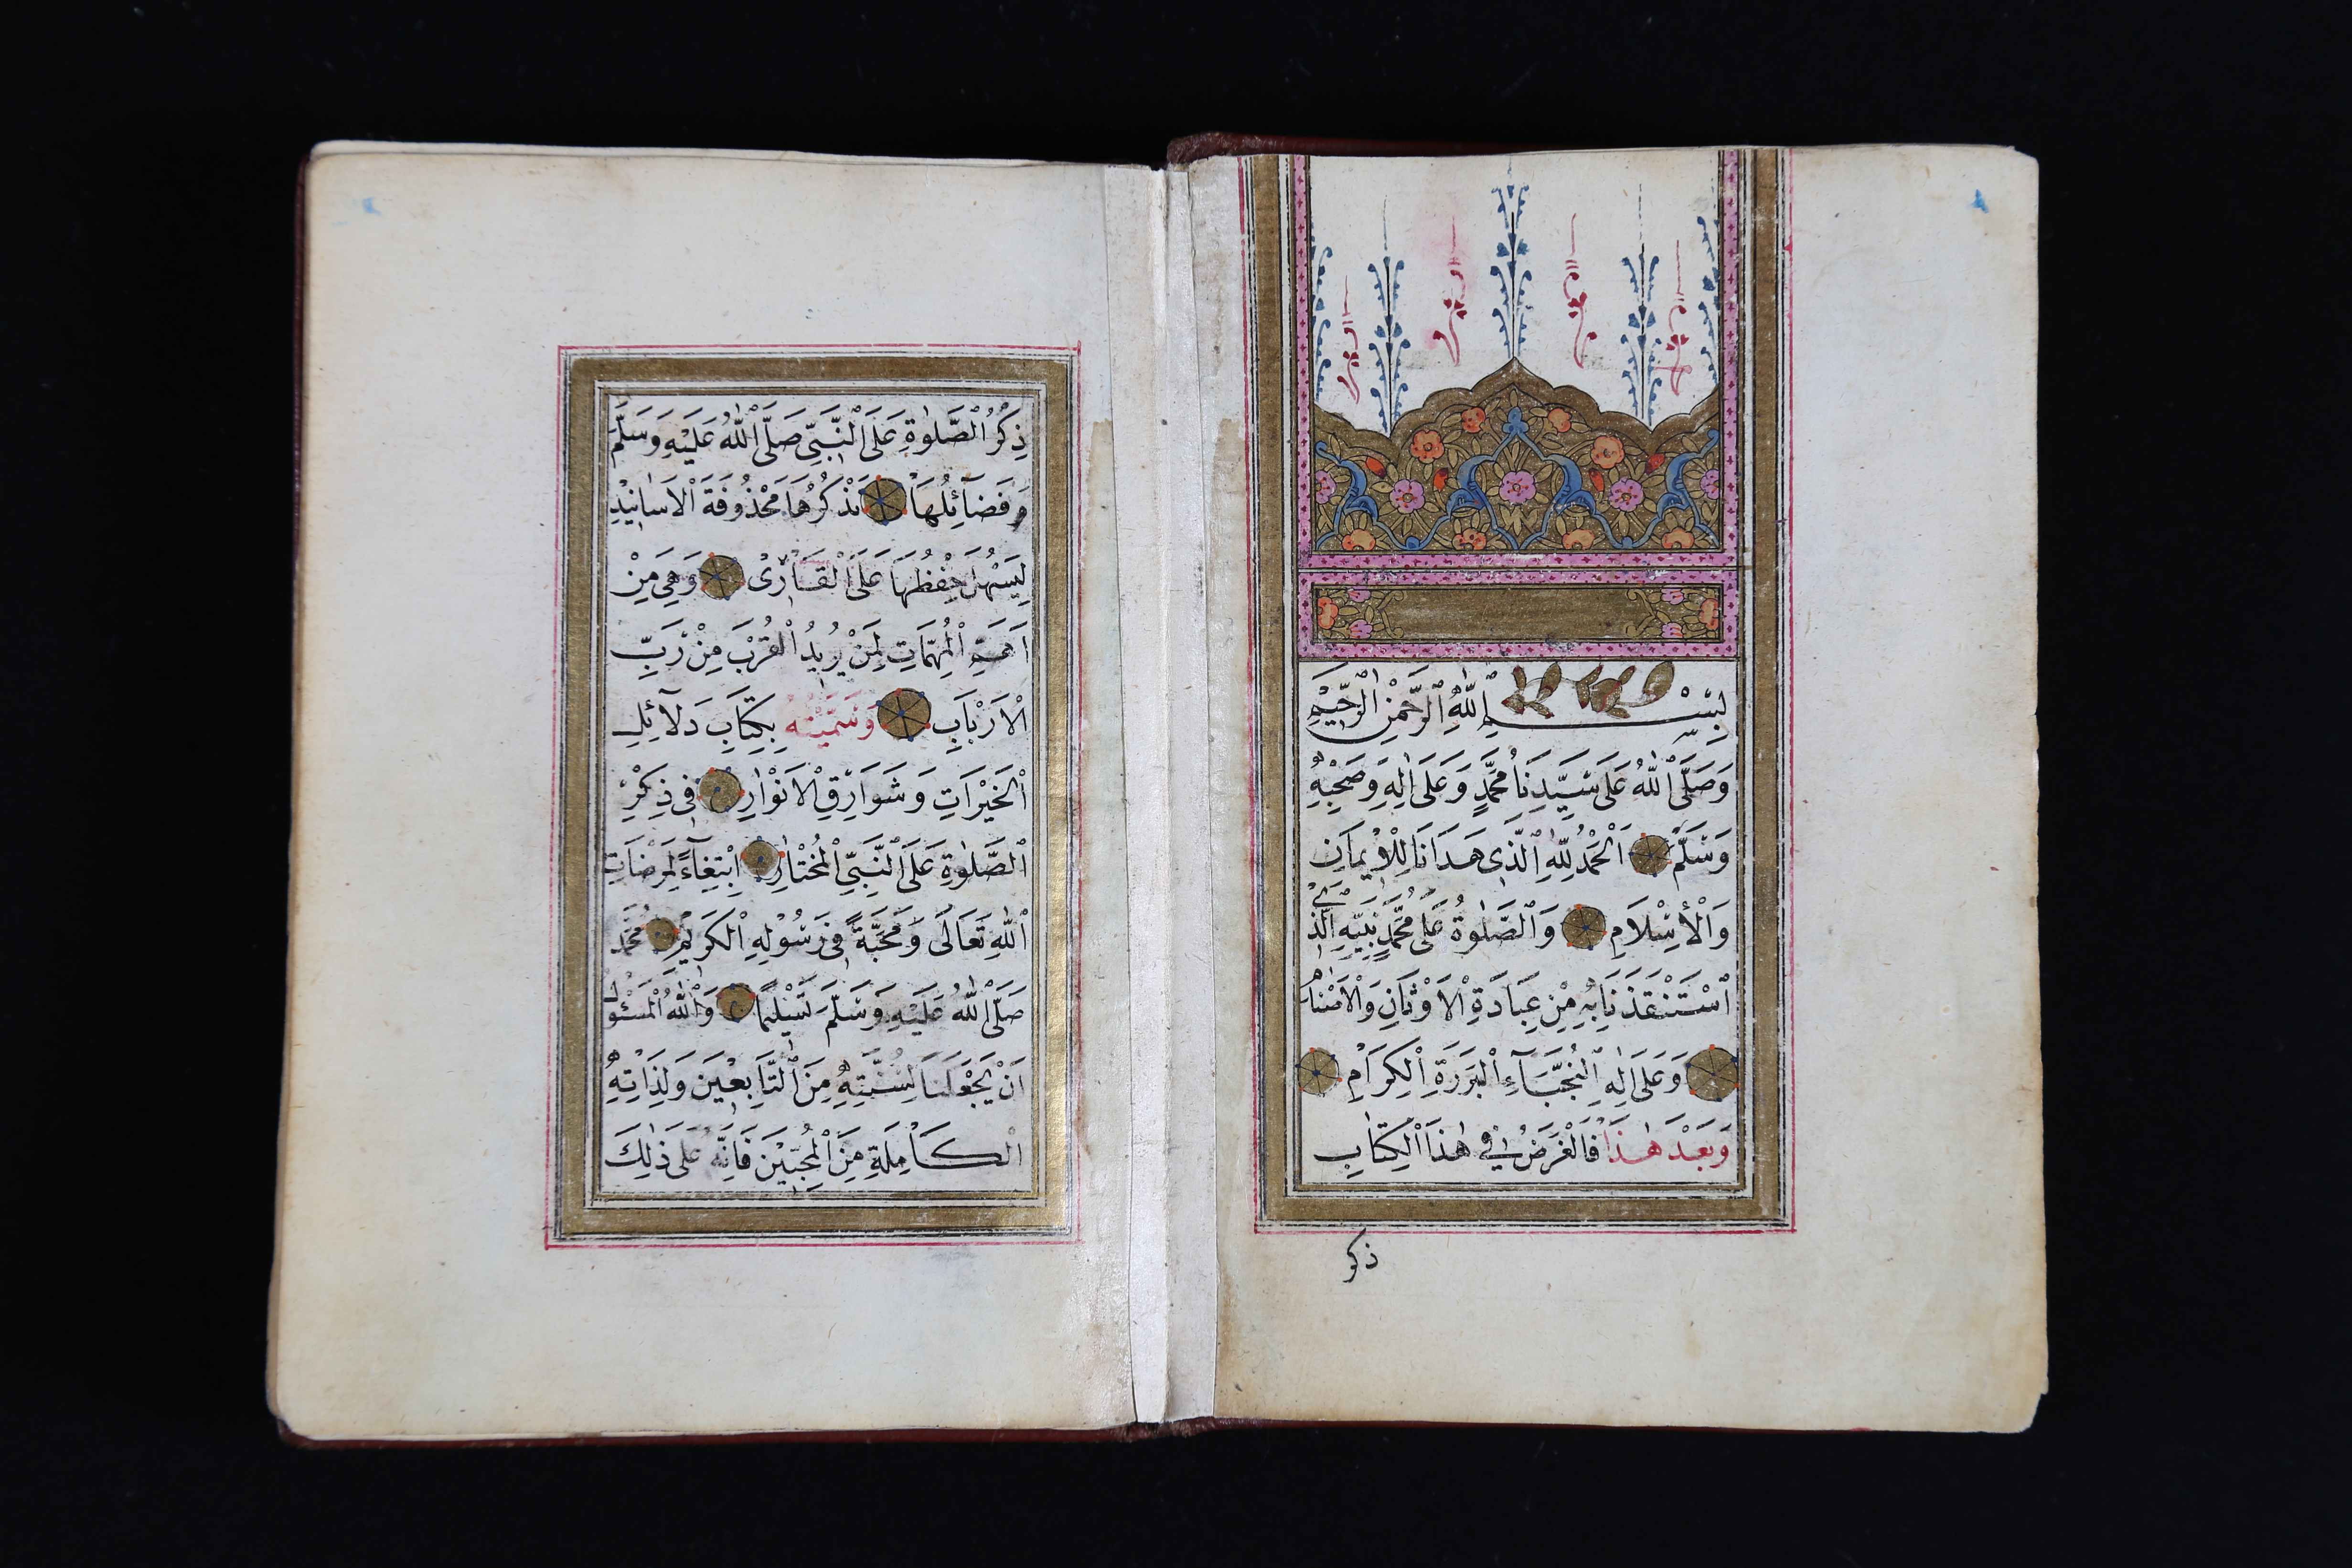 بِسْمِ اللّٰهِ الرَّحْمٰنِ الرَّحِيْمِ
وَصَلَّى اللّٰهُ عَلَى سَيِّدِنَا مُحَمَّدٍ وَعَلَى اٰلِهِ وَصَحْبِهِ
وَسَلَّمَ اَلْحَمْدُ لِلّٰهِ الَّذِى هَدَانَا لِلْاِيمَانِ
وَالْأِسْلَامِ وَالصَّلٰوةُ عَلَى مُحَمَّدٍ نَبِيِّهِ الَّذِى
اسْتَنْقَذَنَا بِهِ مِنْ عِبَادَةِ الْاَوْثَانِ وَالْاَصْنَامِ
وَعَلَى اٰلِهِ النُّجَبَآءِ الْبَرَرَةِ الْكِرَامِ
وَبَعْدَ هٰذَا فَالْغَرَضُ فِي هٰذَا الْكِتَابِ
ذكر
ذِكْرُ الصَّلٰوةِ عَلَى النَّبِيِّ صَلَّى اللّٰهُ عَلَيْهِ وَسَلَّمَ
وَفَضَآئِلُهَا نَذْكُرُهَا مَحْذُوفَةَ الْاَسَانِيْدِ
لِيَسْهُلَ حِفْظُهَا عَلَى الْقَارِئ وَهِيَ مِنْ
اَهَمِّ الْمُهِمَّاتِ لِمَنْ يُرِيدُ الْقُرْبَ مِنْ رَبِّ
الْاَرْبَابِ وَسَمَّيْتُهُ بِكِتَابِ دَلَآئِلِ
الْخَيْرَاتِ وَشَوَارِقِ الْاَنْوَارِ فِى ذِكْرِ
الصَّلٰوةِ عَلَى النَّبِيِّ الْمُخْتَارِ اِبْتِغَآءً لِمَرْضَاتِ
اللّٰهِ تَعَالَى وَمَحَبَّةً فِى رَسُوْلِهِ الْكَرِيْمِ مُحَمَّد
صَلَّى اللّٰهُ عَلَيْهِ وَسَلَّمَ تَسْلِيْمًا وَاللّٰهُ الْمَسْئُولُ
اَنْ يَجْعَلَنَا لِسُنَّتِهِ مِنَ التَّابِعِيْنَ وَلِذَاتِهِ
الْكَامِلَةِ مِنَ الْمُحِبِّيْنَ فَاِنَّهُ عَلَى ذٰلِكَ